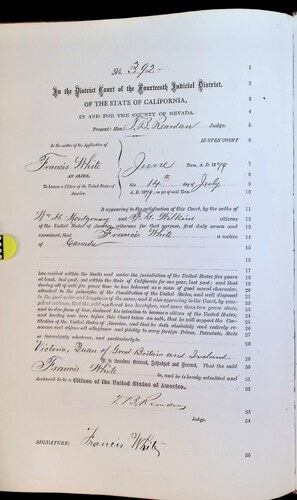 No 392 1
In the District Court of the Fourteenth Judicial District, 2
OF THE STATE OF CALIFORNIA, 3
IN AND FOR THE COUNTY OF NEVADA. 4
Present: Hon. T. B. Reardan Judge. 5
IN OPEN COURT 6
In the matter of the Application of
Francis White June Term, A. D. 1879 7
AN ALIEN, this 14th day of July 9
To become a Citizen of the United States of America A. D. 1879
It appearing to the satisfaction of this Court, by the oaths of
Wm H. Montgomery and citizens
of the United States of America, witnesses for that purpose, first duly sworn and
examined, that Francis White a native
of Canada
has resided within the limits and under the jurisdiction of the United States five years
at least, last past, and within the State of California for one year, last past; and that
during all of said five years' time he has behaved as a man of good moral character,
attached to the principles of the Constitution of the United States, and well disposed
to the good order and happiness of the same; and it also appearing to the Court, by
and having now here before this Court taken an oath, that he will support the Constitution
of the United States of America, and that he doth absolutely and entirely
renounce and abjure all allegiance and fidelity to every foreign Prince, Potentate, State
or Sovereignty whatever, and particularly to
Victoria, Queen of Great Britain and Ireland
It is therefore Ordered, Adjudged and Decreed, That the said
Francis White be, and he is hereby admitted and
declared to be a Citizen of the United States of America.
T. B. Reardan
Judge.
SIGNATURE: Francis White